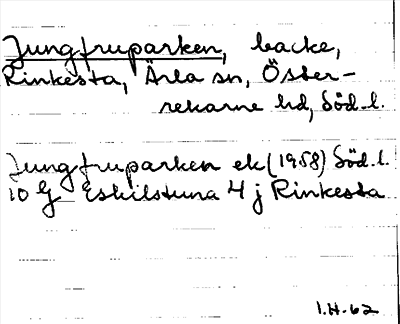 Jungfruparken, backe,
Rinkesta, Ärla sn, Öster-
rekarne hd, Söd.l.
Jungfruparken ek (1958) Söd.l.
10 G Eskilstuna 4 j Rinkesta
I.H-62